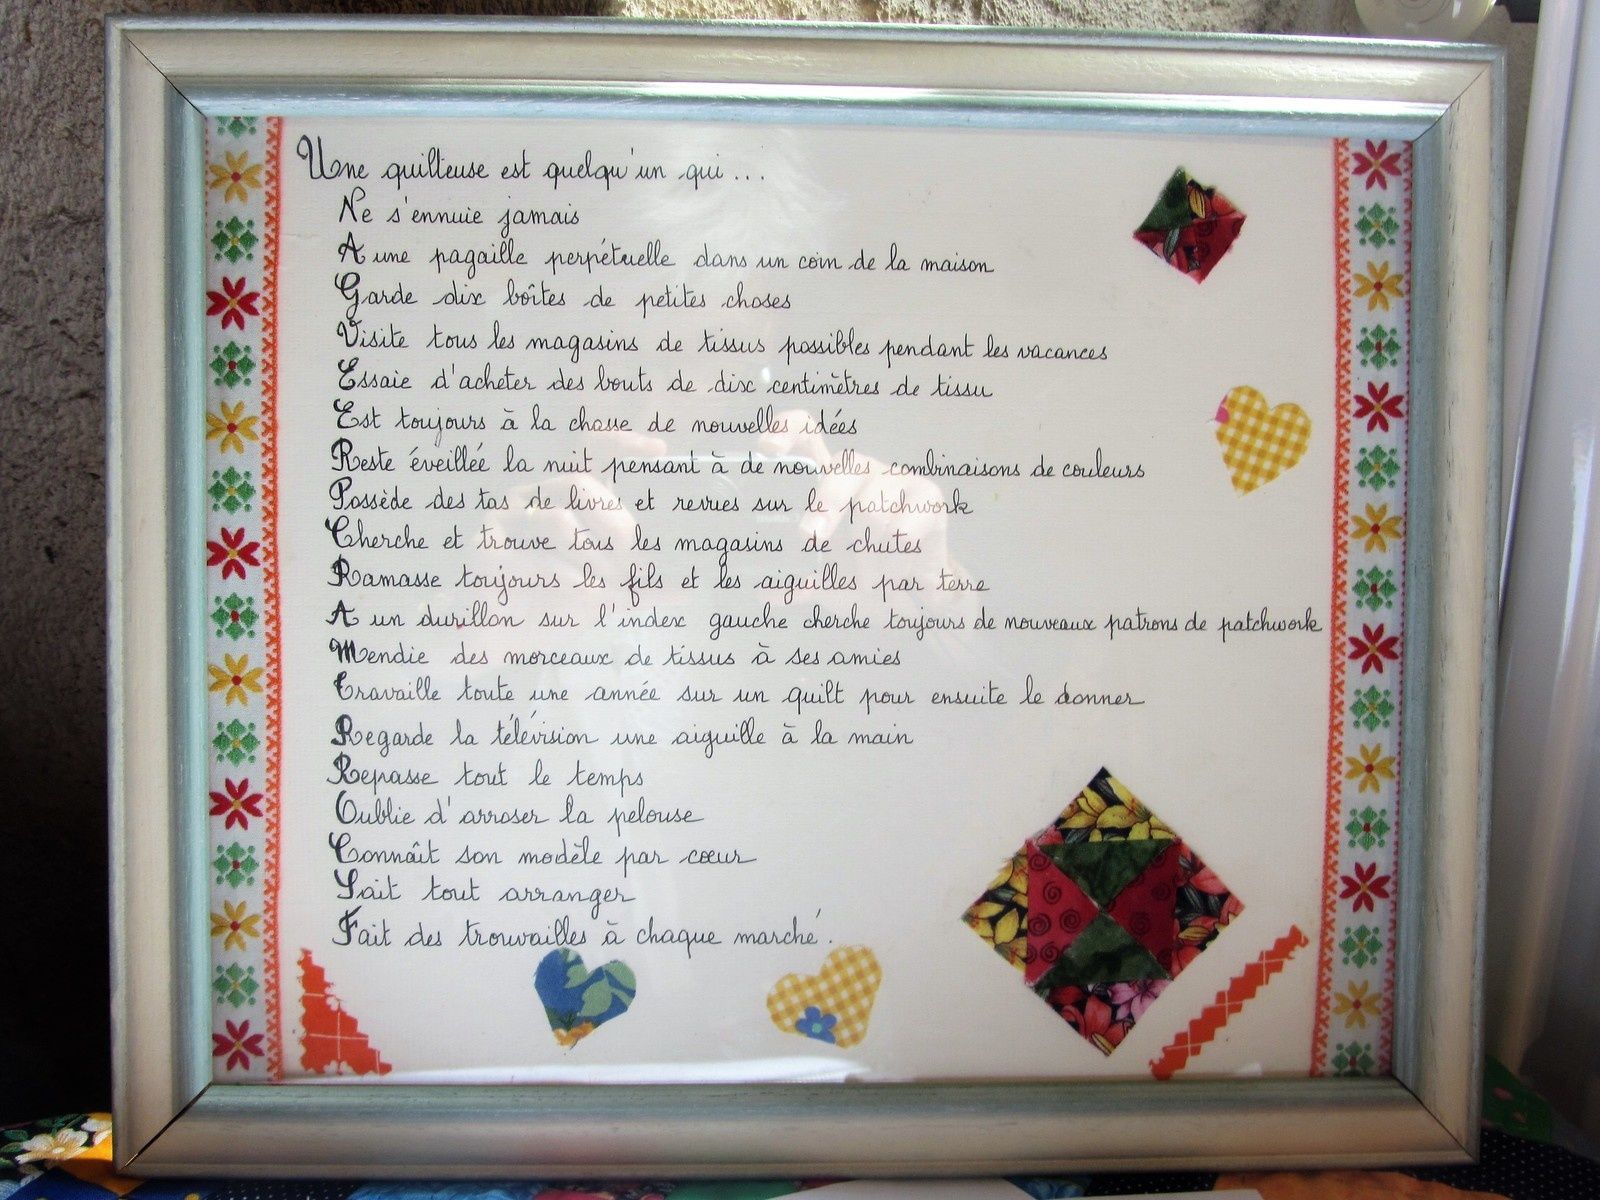 Une quilteuse est quelqu'un qui ...
Ne s'ennuie jamais
A une pagaille perpétuelle dans un coin de la maison
Garde dix boîtes de petites choses
Visite tous les magasins de tissus possibles pendant les vacances
Essaie d'acheter des bouts de dix centimètres de tissu
Est toujours à la chasse de nouvelles idées
Reste éveillée la nuit pensant à de nouvelles combinaisons de couleurs
Possède des tas de livres et revues sur le patchwork
Cherche et trouve tous les magasins de chutes
Ramasse toujours les fils et les aiguilles par terre
A un durillon sur l'index gauche cherche toujours de nouveaux patrons de patchwork
Mendie des morceaux de tissus à ses amies
Travaille toute une année sur un quilt pour ensuite le donner
Regarde la télévision une aiguille à la main
Repasse tout le temps
Oublie d'arroser la pelouse
Connaît son modèle par cœur
Sait tout arranger
Fait des trouvailles à chaque marché.